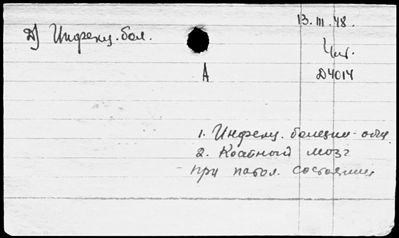 13.III.48.
Д) Инфекц. бол.
Чит.
А
Д4014
1. Инфекц. болезни - общ.
2. Костный мозг
при патол. состояниях